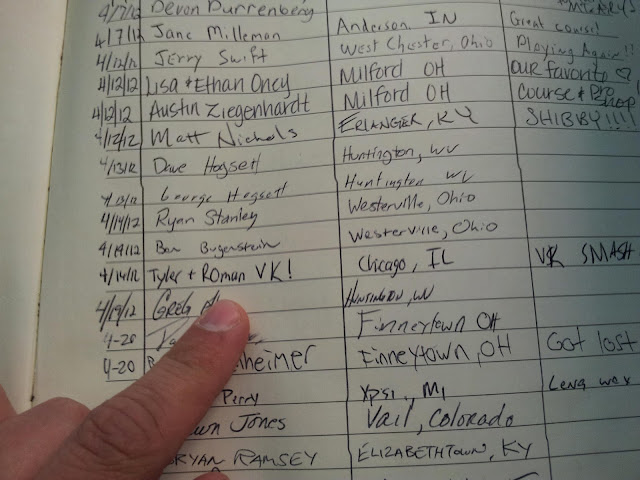 4/7/12 Devon Durrenberg
4/7/12 Jane Milleman Anderson, IN Great course!
4/12/12 Jerry Swift West Chester, Ohio Playing Again!!
4/12/12 Lisa + Ethan Oney Milford OH our favorite ♡
4/12/12 Austin Ziegenhardt Milford OH Course & Pro Shop!
4/12/12 Matt Nichols ERLANGER, KY SHIBBY!!!!
4/13/12 Dave Hogsett Huntington, WV
4/13/12 George Hogsett Huntington WV
4/14/12 Ryan Stanley Westerville, Ohio
4/14/12 Ben Bugenstein Westerville, Ohio
4/14/12 Tyler + ROMAN VK! Chicago, IL VK SMASH
4/19/12 GREG HUNTINGTON, WV
4-20 Finneytown OH
4-20 heimer FINNEYTOWN, OH Got lost
Perry Ypsi, MI Long way
wn Jones Vail, Colorado
RYAN RAMSEY ELIZABETHTOWN, KY